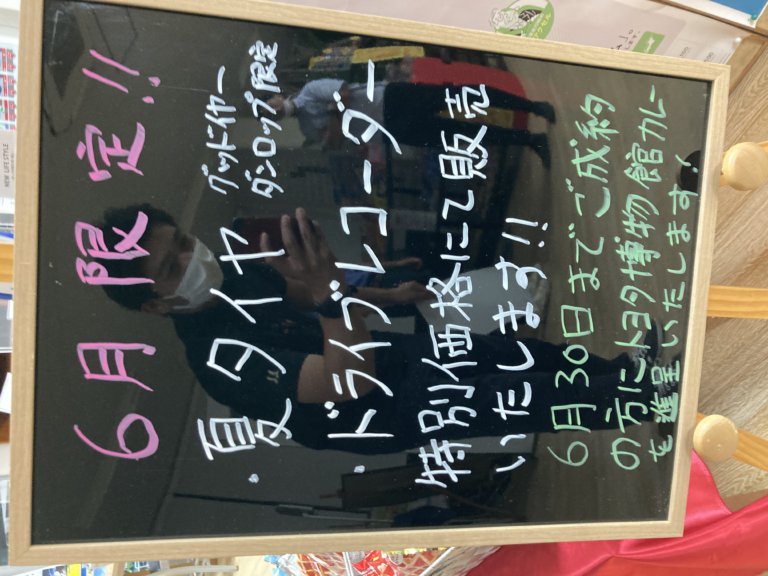 6月限定!!
・夏タイヤ グッドイヤー
ダンロップ限定
・ドライブレコーダー
特別価格にて販売
いたします!!
6月30日までご成約
の方にトヨタ博物館カレー
を進呈いたします!
NEW LIFE STYLE